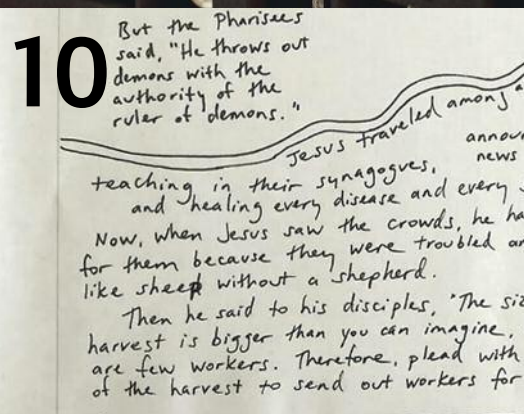 10
But the Pharisees
said, "He throws out
demons with the
authority of the
ruler of demons."
Jesus traveled among
announ
news
teaching in their synagogues,
and healing every disease and every
Now, when Jesus saw the crowds, he ha
for them because they were troubled an
like sheep without a shepherd.
Then he said to his disciples, "The siz
harvest is bigger than you can imagine,
are few workers. Therefore, plead with
of the harvest to send out workers for